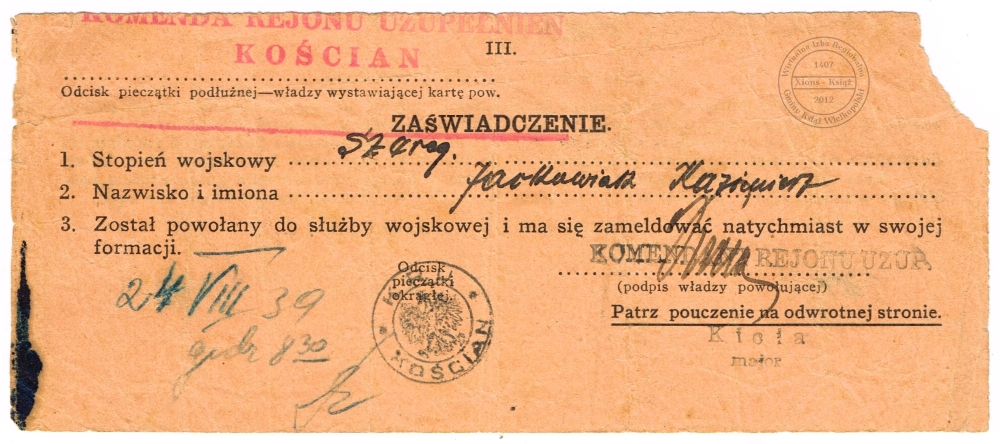 KOMENDA REJONU UZUPEŁNIEŃ
KOŚCIAN
III.
Odcisk pieczątki podłużnej—władzy wystawiającej kartę pow.
Wirtualna Izba Regionalna
1407
Xions - Książ
2012
Gminy Książ Wielkopolski
ZAŚWIADCZENIE.
1. Stopień wojskowy Szereg.
2. Nazwisko i imiona Jackowiak Kazimierz
3. Został powołany do służby wojskowej i ma się zameldować natychmiast w swojej
formacji.
24 VIII 39
godz 8 30
Odcisk
pieczątki
okrągłej.
KOŚCIAN
KOMENDANT REJONU UZUP.
(podpis władzy powołującej)
Patrz pouczenie na odwrotnej stronie.
major